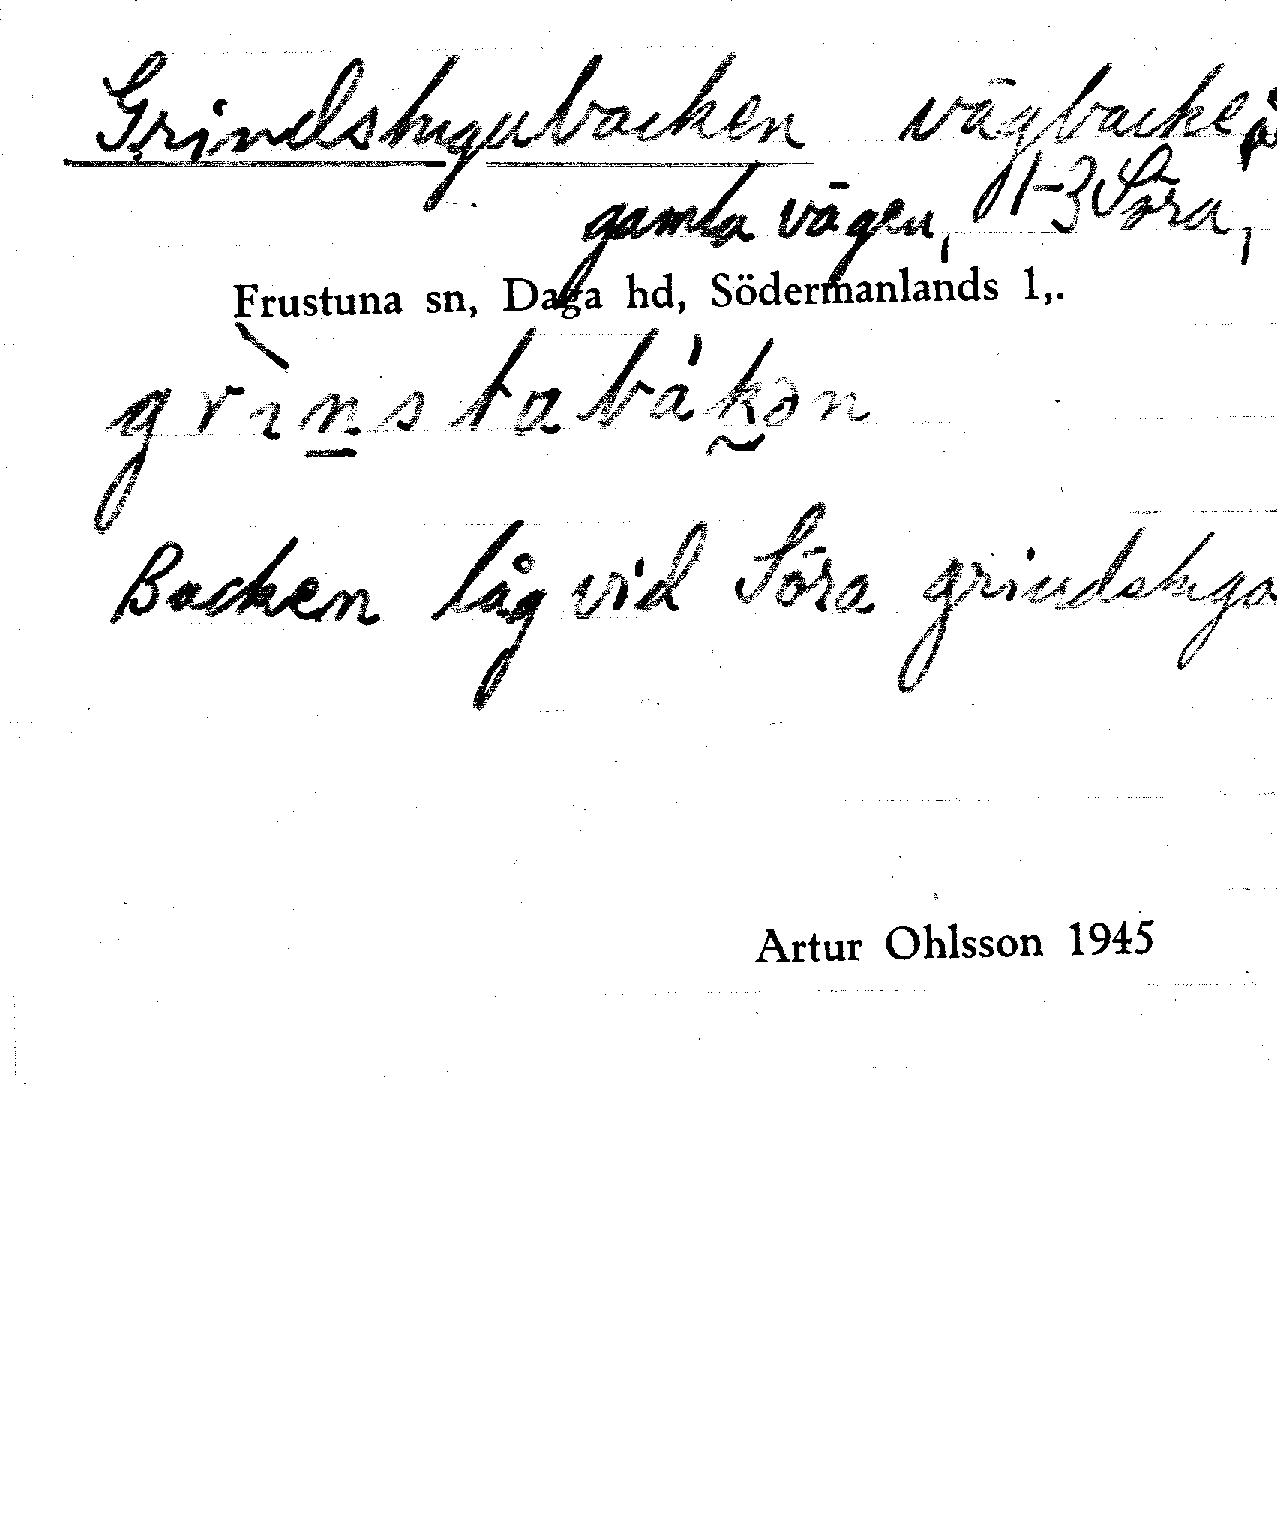 Grindstugubacken vägbacke på
gamla vägen, 1-3 Söra,
Frustuna sn, Daga hd, Södermanlands l,.
grìnstabákən
Backen låg vid Söra grindstuga
Artur Ohlsson 1945